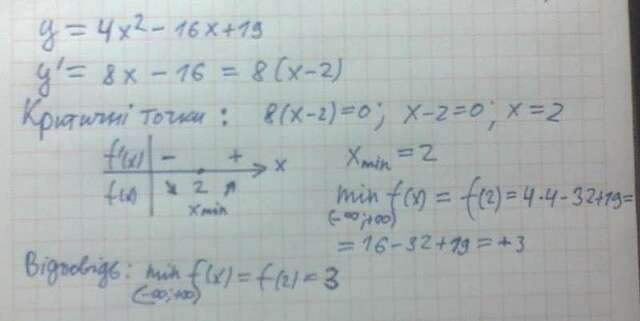 y = 4x² - 16x + 19
y' = 8x - 16 = 8(x-2)
Критичні точки: 8(x-2)=0; x-2=0; x=2
f'(x) | - + → x
f(x) | ↘ 2 ↗
x min
x min = 2
min f(x) = f(2) = 4·4-32+19=
(-∞;+∞)
= 16-32+19 = +3
Відповідь: min f(x) = f(2) = 3
(-∞;+∞)